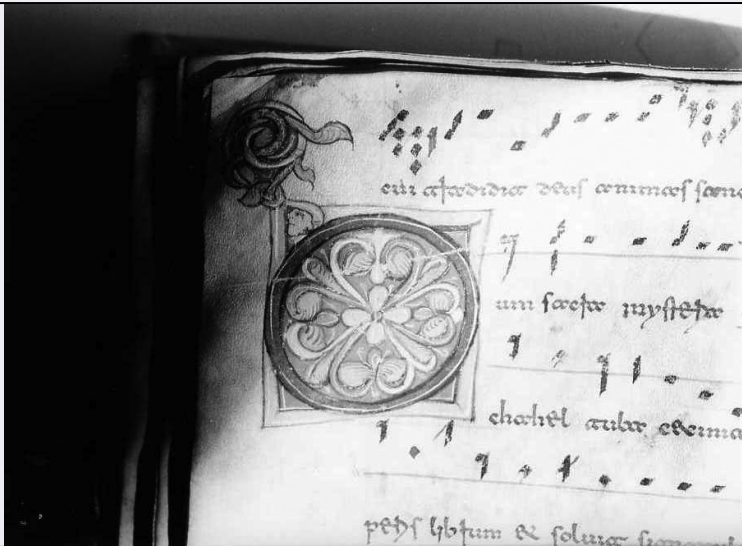 cui tradidit deus animas sanc
Dum sacra mysteria
chahel tuba cecini
peris librum & soluit signacul